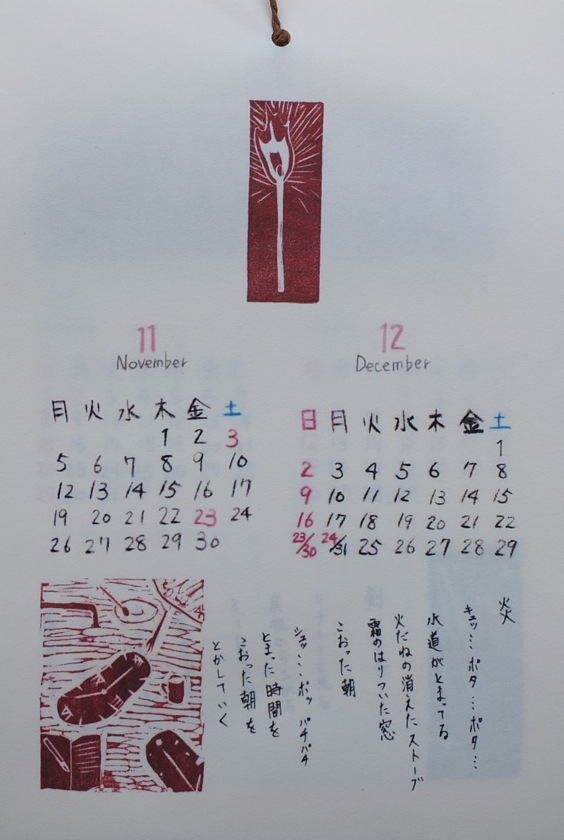 11
November
月 火 水 木 金 土
1 2 3
5 6 7 8 9 10
12 13 14 15 16 17
19 20 21 22 23 24
26 27 28 29 30
12
December
日 月 火 水 木 金 土
1
2 3 4 5 6 7 8
9 10 11 12 13 14 15
16 17 18 19 20 21 22
23/30 24/31 25 26 27 28 29
炎
キュッ… ポタ… ポタ…
水道がとまってる
火だねの消えたストーブ
霜のはりついた窓
こおった朝
シュッ… ポッ パチパチ
とまった時間を
こおった朝を
とかしていく